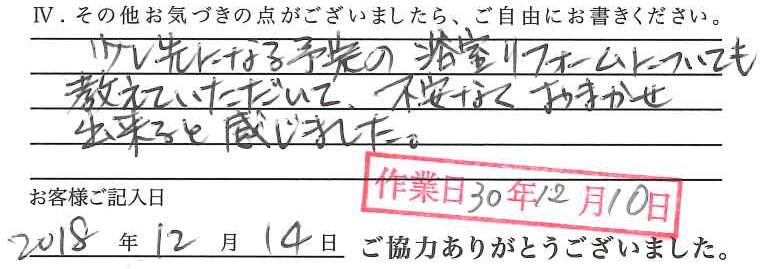 Ⅳ．その他お気づきの点がございましたら、ご自由にお書きください。
少し先になる予定の浴室リフォームについても
教えていただいて、不安なくおまかせ
出来ると感じました。
作業日30年12月10日
お客様ご記入日
2018年12月14日 ご協力ありがとうございました。